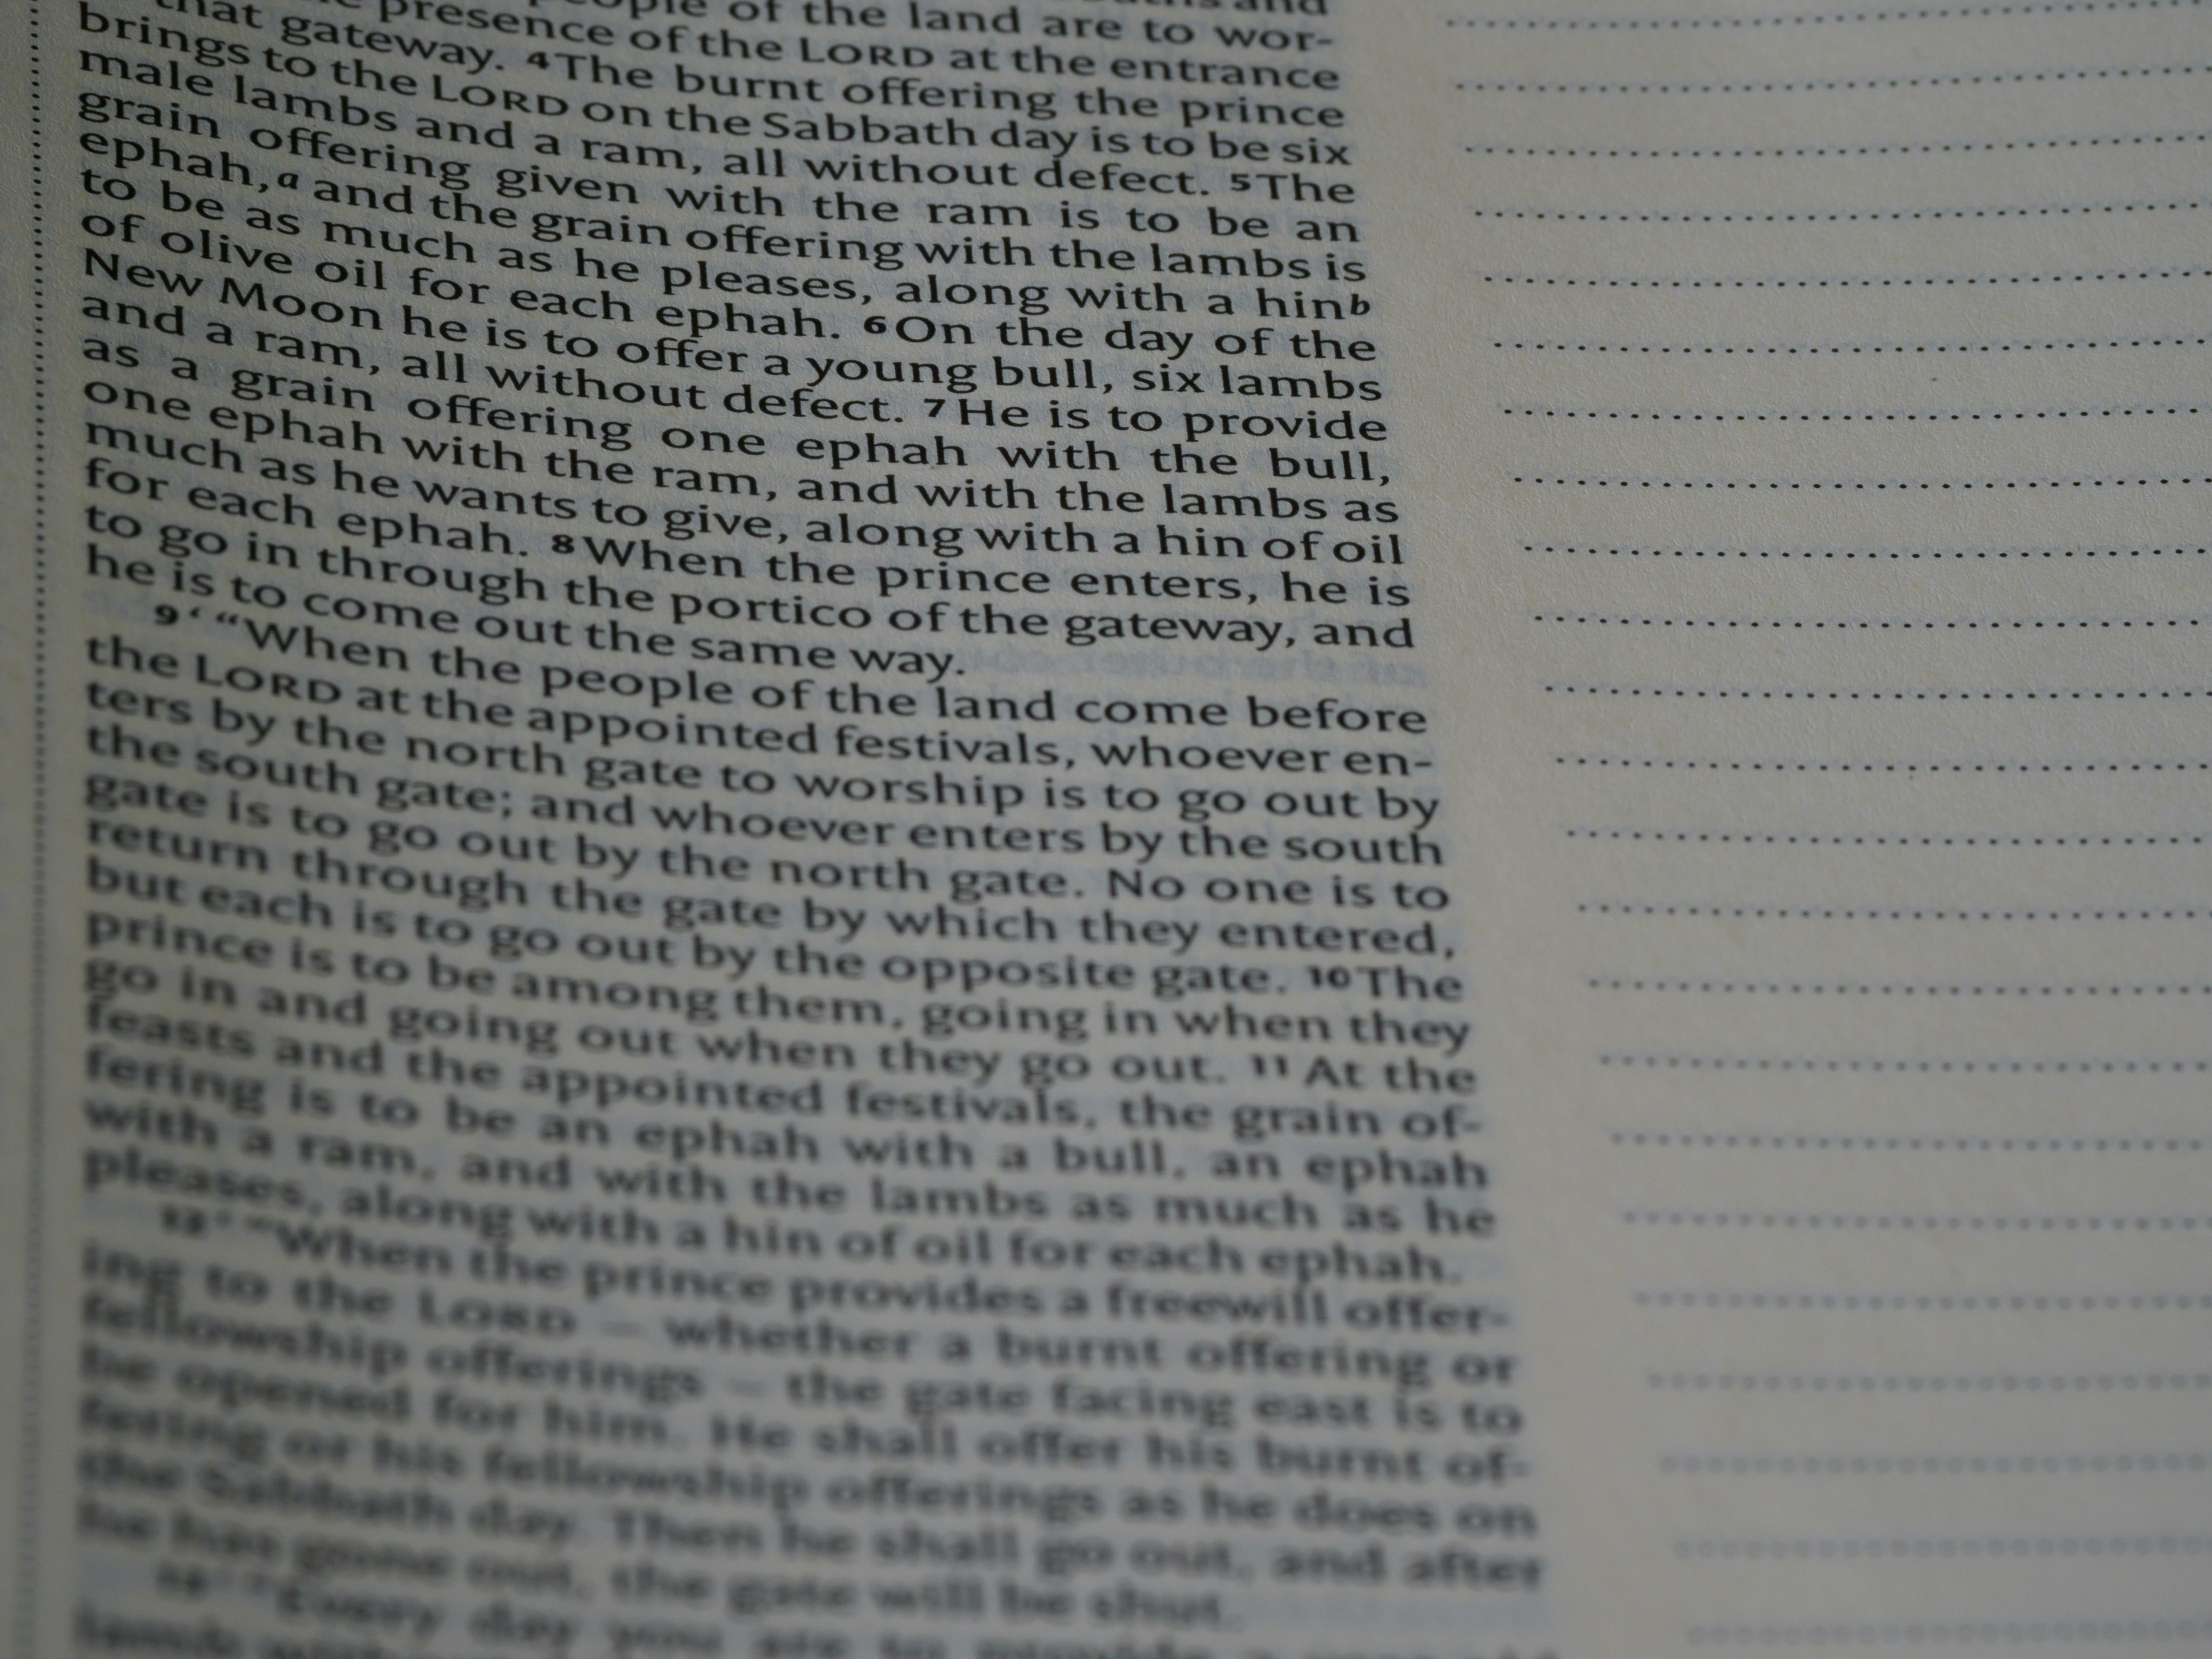 people of the land are to wor-
presence of the LORD at the entrance
that gateway. 4 The burnt offering the prince
brings to the LORD on the Sabbath day is to be six
male lambs and a ram, all without defect. 5 The
grain offering given with the ram is to be an
ephah,a and the grain offering with the lambs is
to be as much as he pleases, along with a hinb
of olive oil for each ephah. 6 On the day of the
New Moon he is to offer a young bull, six lambs
and a ram, all without defect. 7 He is to provide
as a grain offering one ephah with the bull,
one ephah with the ram, and with the lambs as
much as he wants to give, along with a hin of oil
for each ephah. 8 When the prince enters, he is
to go in through the portico of the gateway, and
he is to come out the same way.
9 ‘ “When the people of the land come before
the LORD at the appointed festivals, whoever en-
ters by the north gate to worship is to go out by
the south gate; and whoever enters by the south
gate is to go out by the north gate. No one is to
return through the gate by which they entered,
but each is to go out by the opposite gate. 10 The
prince is to be among them, going in when they
go in and going out when they go out. 11 At the
feasts and the appointed festivals, the grain of-
fering is to be an ephah with a bull, an ephah
with a ram, and with the lambs as much as he
pleases, along with a hin of oil for each ephah.
12 ‘ “When the prince provides a freewill offer-
ing to the LORD – whether a burnt offering or
fellowship offerings – the gate facing east is to
be opened for him. He shall offer his burnt of-
fering or his fellowship offerings as he does on
the Sabbath day. Then he shall go out, and after
he has gone out, the gate will be shut.
Every day you are to provide a